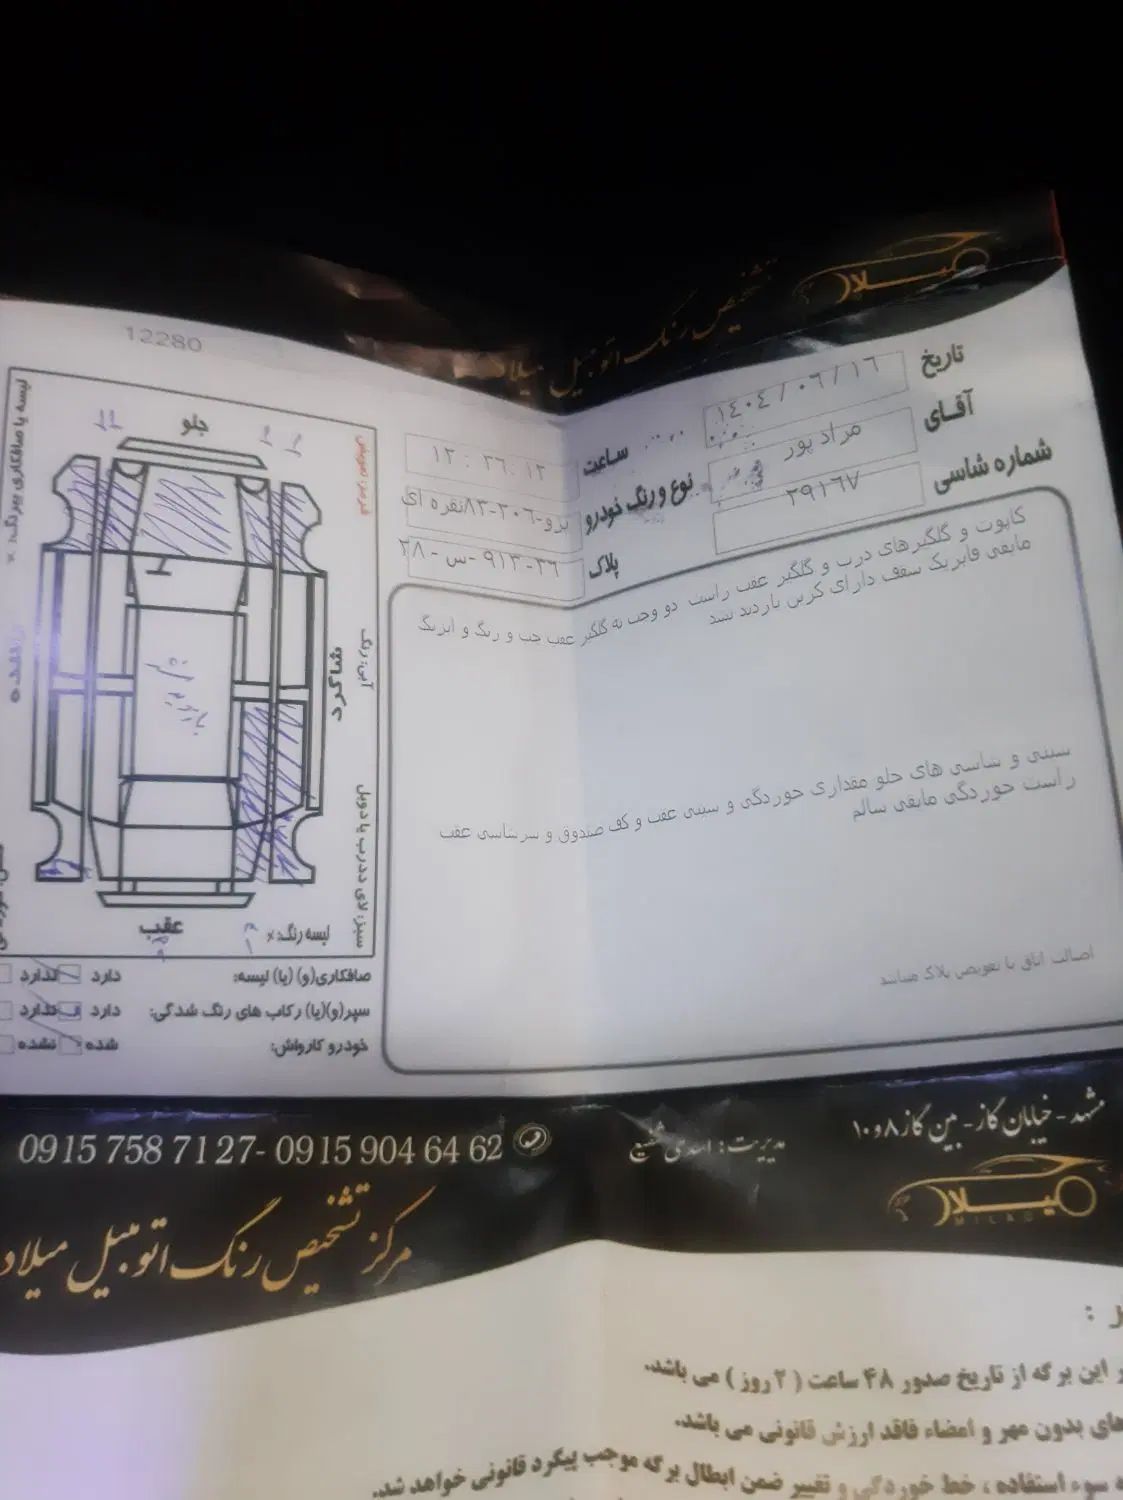 تشخیص رنگ اتومبیل میلاد
میلاد
12280
تاریخ ۱۴۰۴/۰۶/۱۶
ساعت ۱۲:۲۶:۱۲
آقای مرادپور
نوع و رنگ خودرو پژو-۲۰۶-۸۳نقره ای
شماره شاسی ۲۹۱۶۷
پلاک ۳۶-۹۱۳-س-۲۸
کاپوت و گلگیرهای درب و گلگیر عقب راست دو وجب به گلگیر عقب چپ و رنگ و
مابقی فابریک سقف دارای کربن بازدید شد
سینی و شاسی های جلو مقداری خوردگی و سینی عقب و کف صندوق و سرشاسی عقب
راست خوردگی مابقی سالم
اصالت اتاق با تعویض پلاک میباشد
جلو
شاگرد
عقب
لیسه یا صافکاری بیرنگ: ×
قرمز: تعویض
آبی: رنگ
سبز: لای درب یا دوبل
لیسه رنگ: ×
صافکاری(و) (یا) لیسه: دارد ندارد
سپر(و)(یا) رکاب های رنگ شدگی: دارد ندارد
خودرو کارواش: شده نشده
مشهد - خیابان گاز - بین گاز ۸ و ۱۰
مدیریت: اسدی شفیع
0915 758 71 27 - 0915 904 64 62
میلاد
MILAD
مرکز تشخیص رنگ اتومبیل میلاد
این برگه از تاریخ صدور ۴۸ ساعت (۲ روز) می باشد.
های بدون مهر و امضاء فاقد ارزش قانونی می باشد.
سوء استفاده ، خط خوردگی و تغییر ضمن ابطال برگه موجب پیگرد قانونی خواهد شد.